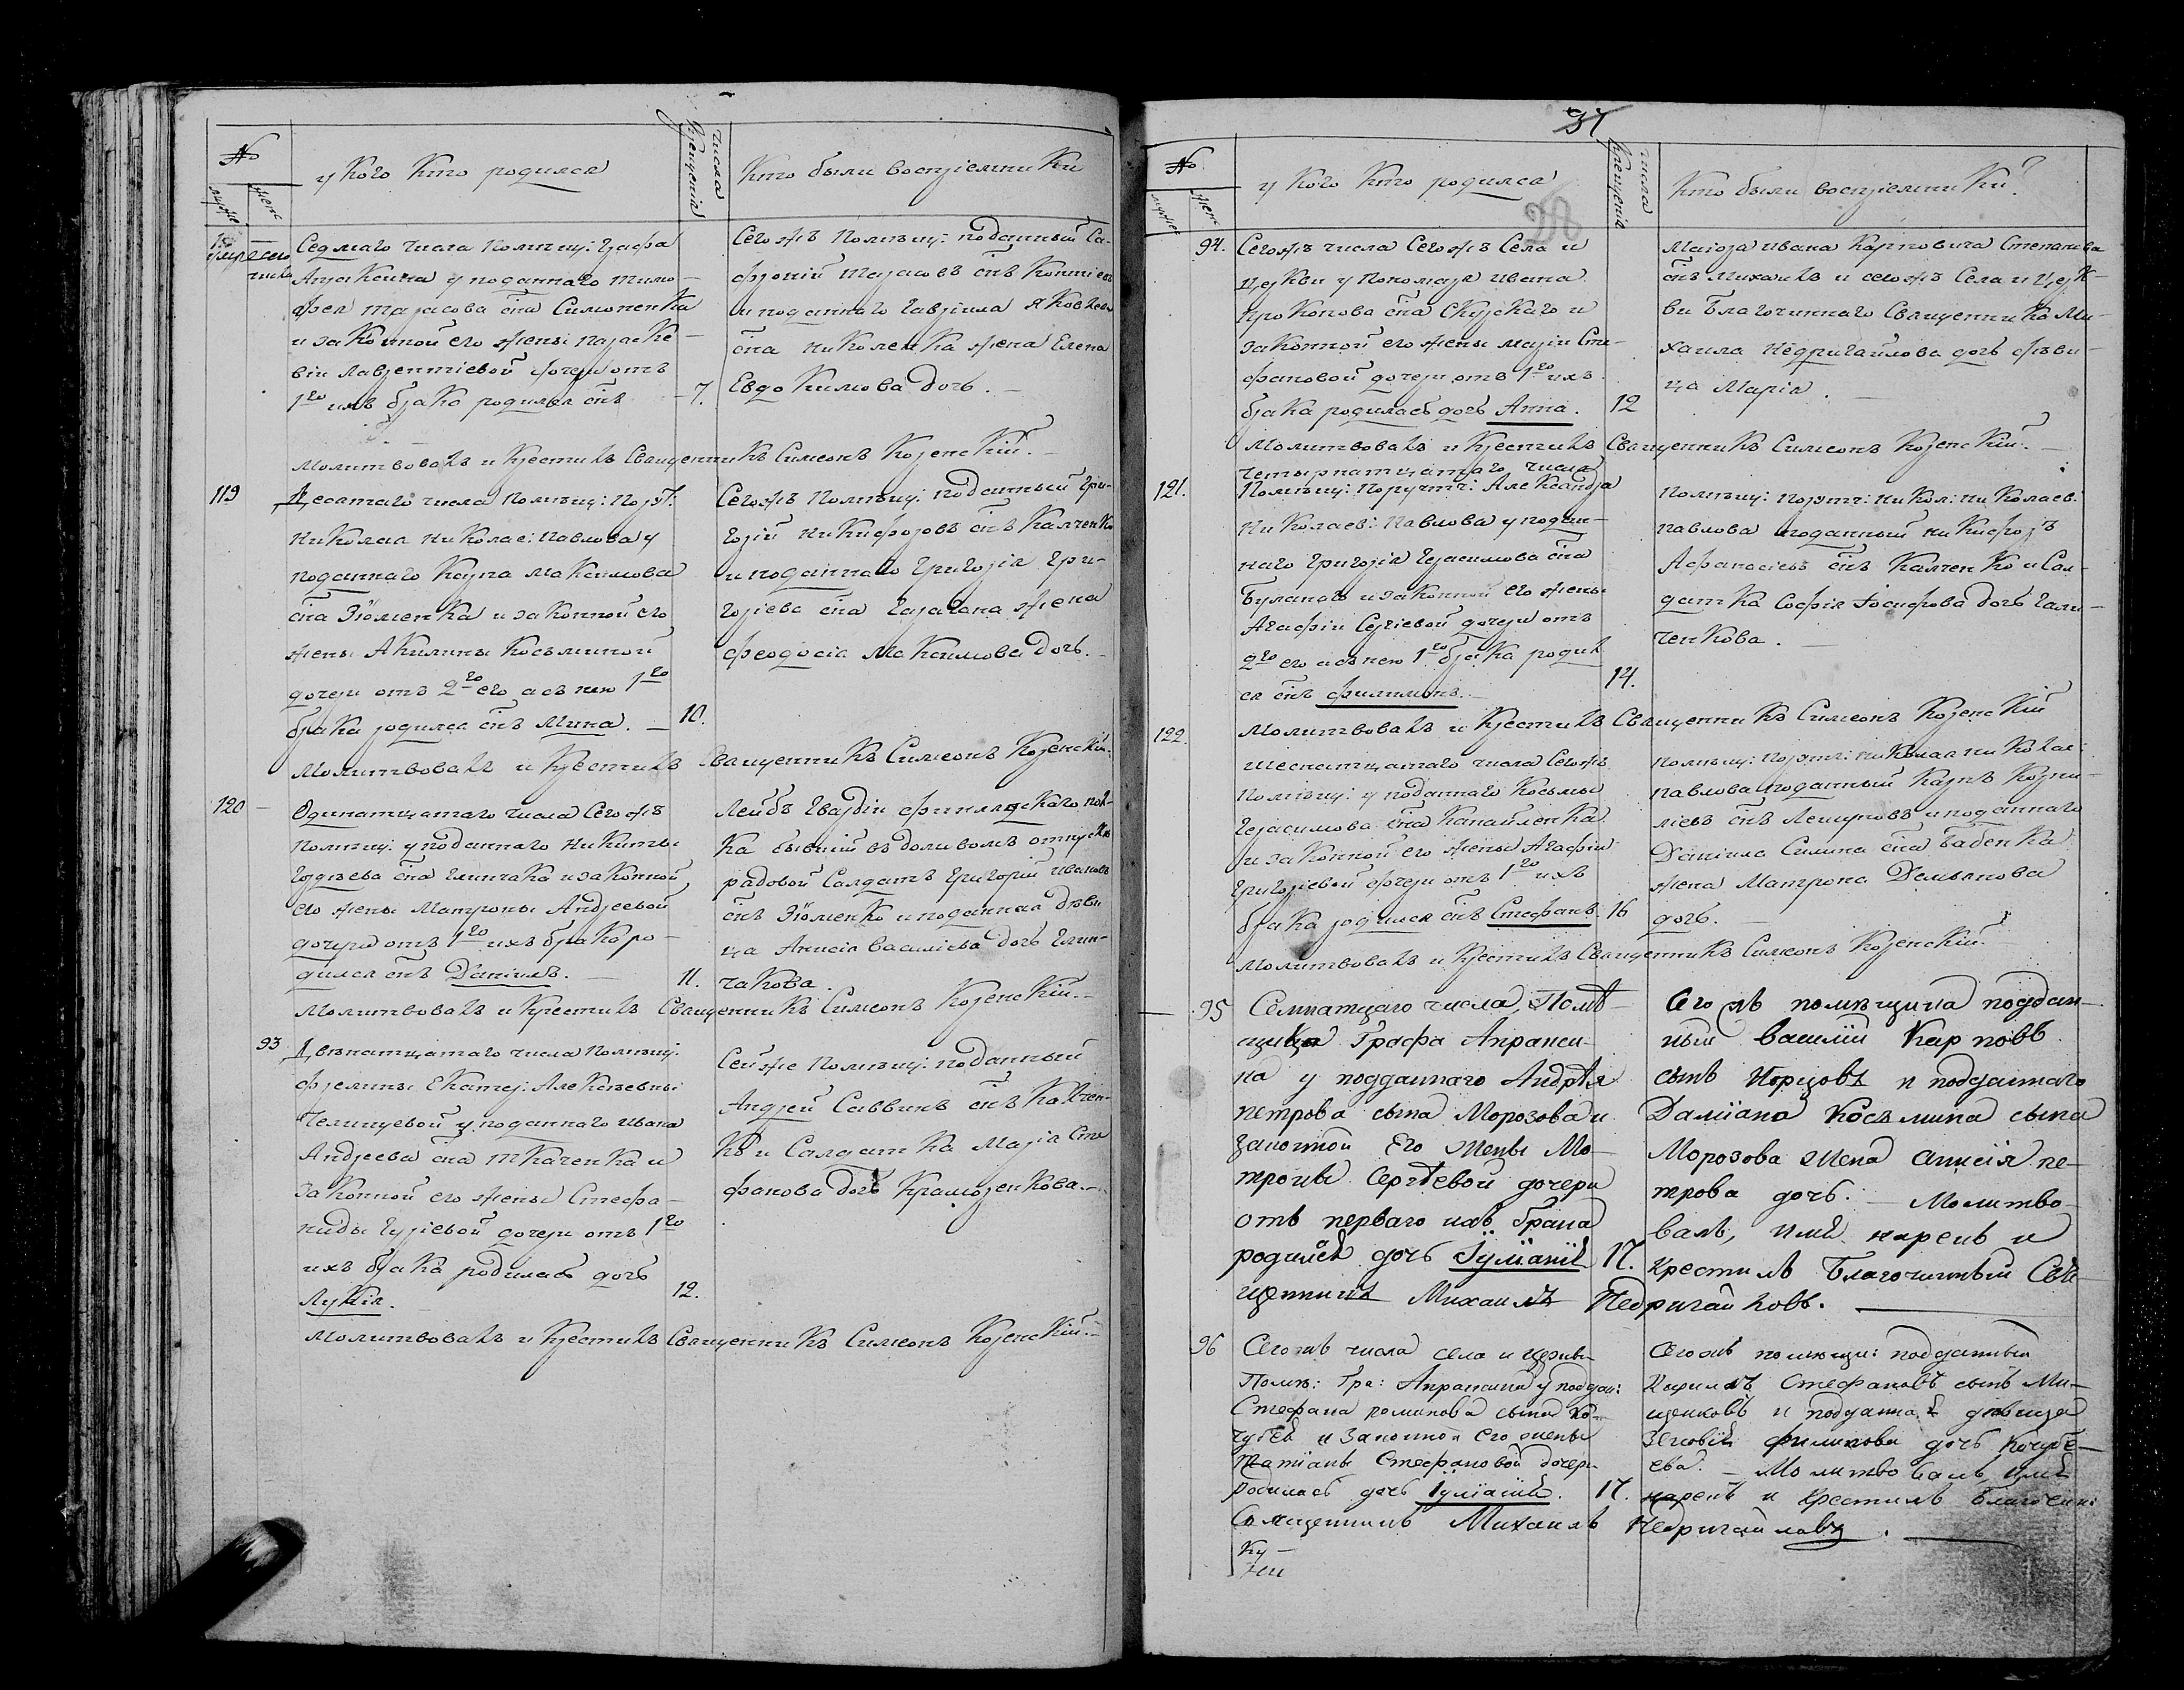 №
мужес
женс
у кого кто родился
числа крещенія
кто были воспріемники
Седмаго числа помѣщ: графа
Апраксина у поданнаго Тимо-
фея Тарасова сна Симоненка
и законной его жены Параске-
віи Лаврентіевой дочери отъ
1го ихъ брака родился снъ
7.
Сегожъ помѣщ: поданный Са-
фроній Тарасовъ снъ
и поданнаго Гавріила Яковлева
сна Николенка жена Елена
Евдокимова дочь.
Молитвовалъ и крестилъ Священникъ Симеонъ Козенскій.
119
Десятаго числа помѣщ: порут:
Николая Николае: Павлова у
поданнаго Карпа Максимова
сна Зюменка и законной его
жены Акилины Косьминой
дочери отъ 2го его а съ нею 1го
брака родился снъ Мина.
10.
Сегожъ помѣщ: поданный Гри-
горій Никифоровъ снъ Калченко
и поданнаго Григорія Гри-
горіева сна Гарагана жена
Феодосія Максимова дочь.
Молитвовалъ и крестилъ Священникъ Симеонъ Козенскій.
120
Одинатцатаго числа Сегожъ
помѣщ: у поданнаго Никиты
Гордѣева сна Глинчака и законной
его жены Матроны Андреевой
дочери отъ 1го ихъ брака ро-
дился снъ Даніилъ.
11.
Лейбъ Гвардіи Финляндскаго пол-
ка бывшій въ отпускѣ
радовой Салдатъ Григорій Ивановъ
снъ Зюменко и поданная дѣви-
ца Анисія Василіева дочь Глин-
чакова.
Молитвовалъ и Крестилъ Священникъ Симеонъ Козенскій.
93
Двѣнатцатаго числа помѣщ:
Фрелины Екатер: Алексѣевны
у поданнаго Ивана
Андреева сна Ткаченка и
законной его жены Стефа-
ниды Гуріевой дочери отъ 1го
ихъ брака родилась дочь
Лукія.
12.
Сейже помѣщ: поданный
Андрей Саввинъ снъ Калчен-
ко и Салдатка Марія Сте-
фанова дочь Крамозенкова.
Молитвовалъ и Крестилъ Священникъ Симеонъ Козенскій.
37
№
мужес
женс
у кого кто родился
числа крещенія
кто были воспріемники
94.
Сегожъ числа Сегожъ Села и
церкви у пономаря Ивана
Прокопова сна Скурскаго и
законной его жены Маріи Сте-
фановой дочери отъ 1го ихъ
брака родилась дочь Анна.
12
Маіора Ивана Карповича Степанова
снъ Михаилъ и сегожъ Села и Церк-
ви Благочиннаго Священника Ми-
хаила Недригайлова дочь дѣви-
ца Марія.
Молитвовалъ и крестилъ Священникъ Симеонъ Козенскій.
121.
Четырнатцатаго числа
Помѣщ: Порутч: Александра
Николаев: Павлова у подан-
наго Григорія Герасимова сна
Буланаго и законной его жены
Агафіи Сергіевой дочери отъ
2го его а съ нею 1го брака родил
ся снъ Филимонъ.
14.
Помѣщ: порутч: Никол: Николаев:
Павлова поданный Никифоръ
Афанасіевъ снъ Калченко и Сал-
датка Софія Іосифова дочь Гали-
ченкова.
Молитвовалъ и Крестилъ Священникъ Симеонъ Козенскій
122.
Шеснатцатаго числа Сегожъ
помѣщ: у поданнаго Косьмы
Герасимова сна Канайленка
и законной его жены Агафіи
Григоріевой дочери отъ 1го ихъ
брака родился снъ Стефанъ.
16
Помѣщ: порутч: Николая Николае:
Павлова поданный Карпъ Корни-
ліевъ снъ Лемуровъ и поданнаго
Даніила Силина сна Бабенка
жена Матрона Демьянова
дочь.
Молитвовалъ и Крестилъ Священникъ Симеонъ Козенскій.
95
Семнатцаго числа, Помѣ-
щика Графа Апракси-
на у подданнаго Андрѣя
петрова сына Морозова и
законной Его жены Мо-
троны Сергѣевой дочери
отъ перваго ихъ брака
родилась дочь Іуліанія
17.
Сего жъ помѣщика поддан-
ный Василій Карповъ
сынъ и подданнаго
Даміана Косьмина сына
Морозова жена Анисія пе-
трова дочь. — Молитво-
валъ, имя нарекъ и
крестилъ Благочинный Свя-
щенникъ Михаилъ Недригайловъ.
96
Сегожъ числа села и церкви
Помѣ: Гра: Апраксина у поддан:
Стефана романова сына Ко-
чубея и законной его жены
Татіаны Стефановой дочери
родилась дочь Іуліанія.
17.
Сегожъ помѣщи: подданный
Кирилъ Стефановъ сынъ Ми-
щенковъ и подданная дѣвица
Зѣновія Филипова дочь Кочубе-
ева. — Молитвовалъ, имя
нарекъ и крестилъ Благочин:
Священникъ Михаилъ Недригайловъ.